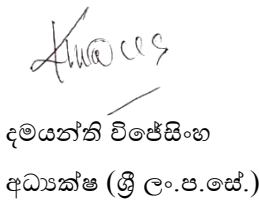 දමයන්ති විජේසිංහ
අධ්‍යක්ෂ (ශ්‍රී ලං.ප.සේ.)